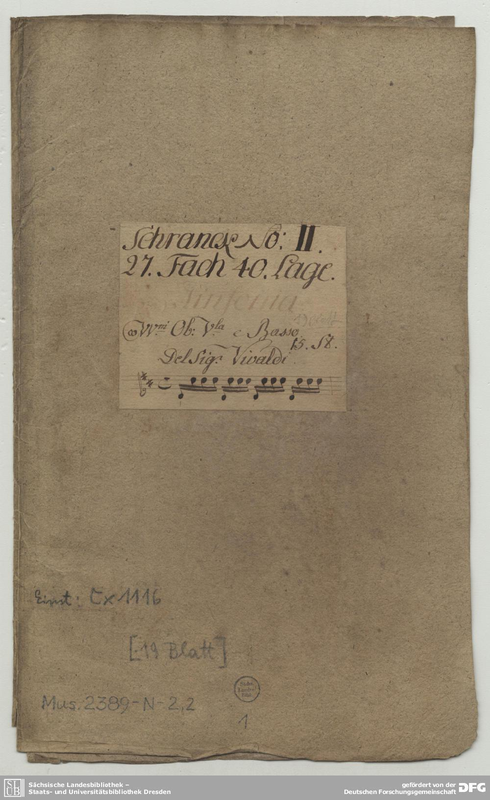 Schranck No: II.
27. Fach 40. Lage.
Sinfonia
co VV.ni Ob: V.la e Basso
15. St.
Del Sig.r Vivaldi
Einst: Cx 1116
[19 Blatt]
Mus. 2389-N-2,2
1
Sächsische Landesbibliothek –
Staats- und Universitätsbibliothek Dresden
gefördert von der
Deutschen Forschungsgemeinschaft
DFG